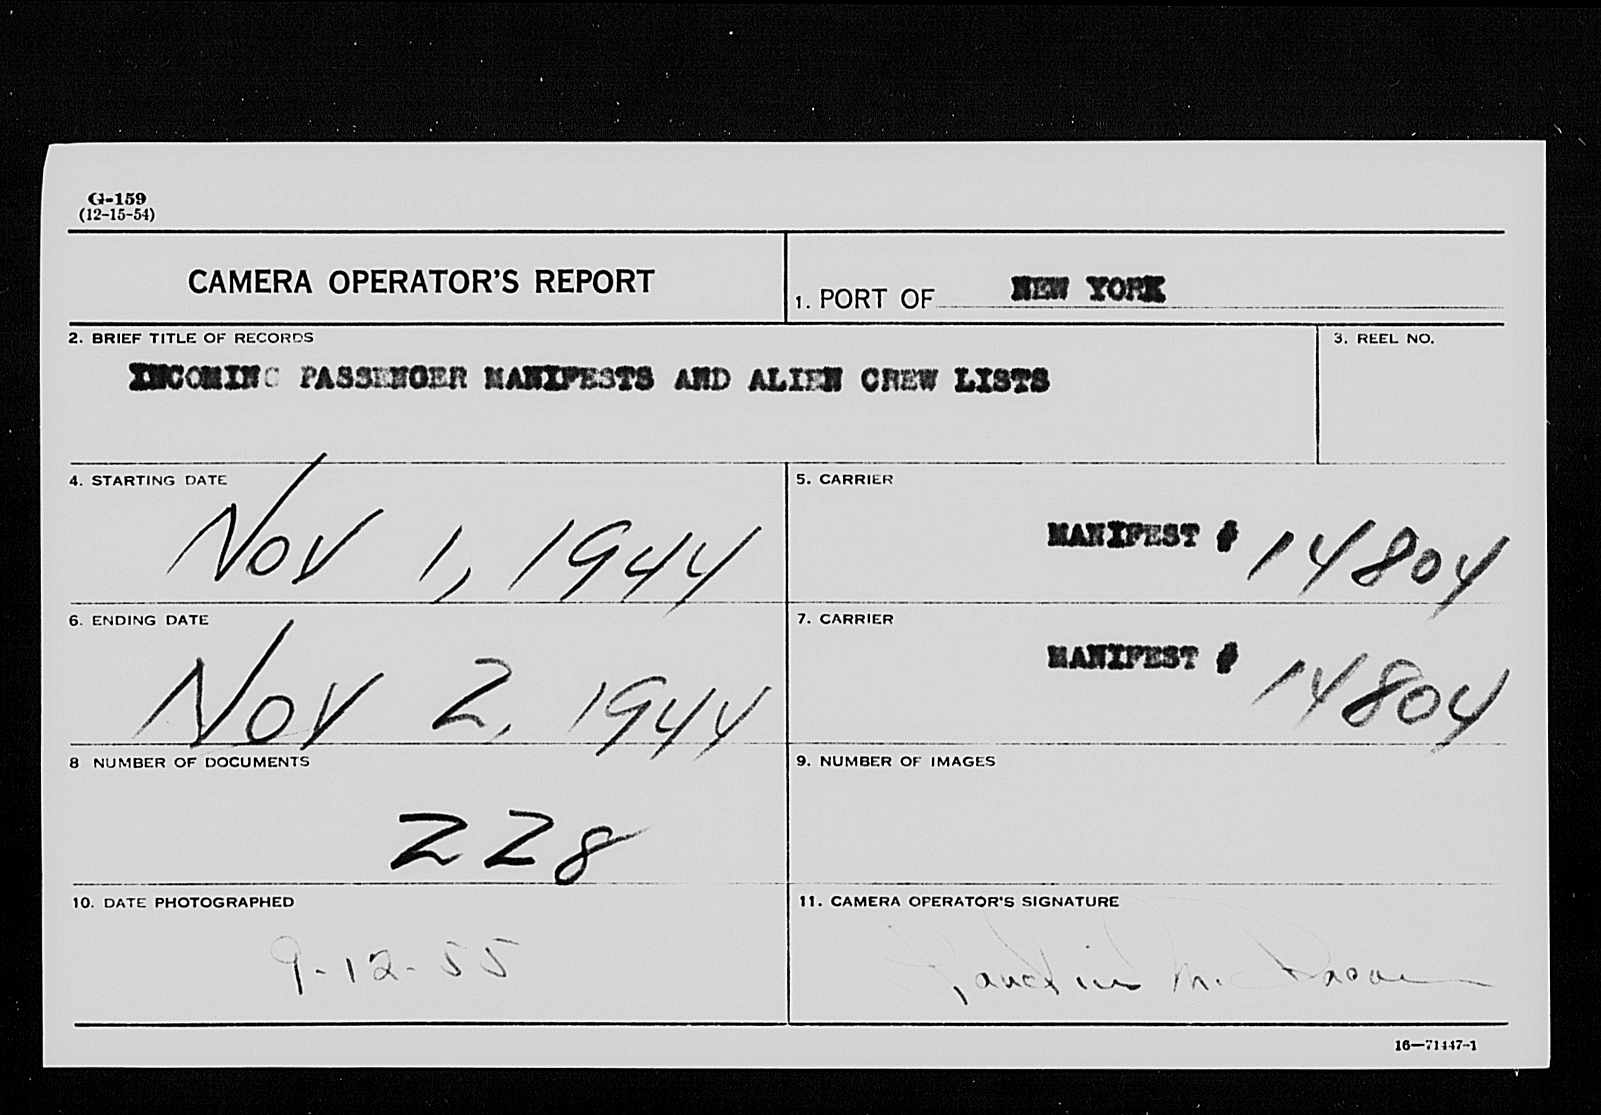 G-159
(12-15-54)
CAMERA OPERATOR'S REPORT
1. PORT OF NEW YORK
2. BRIEF TITLE OF RECORDS
3. REEL NO.
INCOMING PASSENGER MANIFESTS AND ALIEN CREW LISTS
4. STARTING DATE
5. CARRIER
Nov 1, 1944
MANIFEST # 14804
6. ENDING DATE
7. CARRIER
Nov 2, 1944
MANIFEST # 14804
8 NUMBER OF DOCUMENTS
9. NUMBER OF IMAGES
228
10. DATE PHOTOGRAPHED
11. CAMERA OPERATOR'S SIGNATURE
9-12-55
16—71447-1